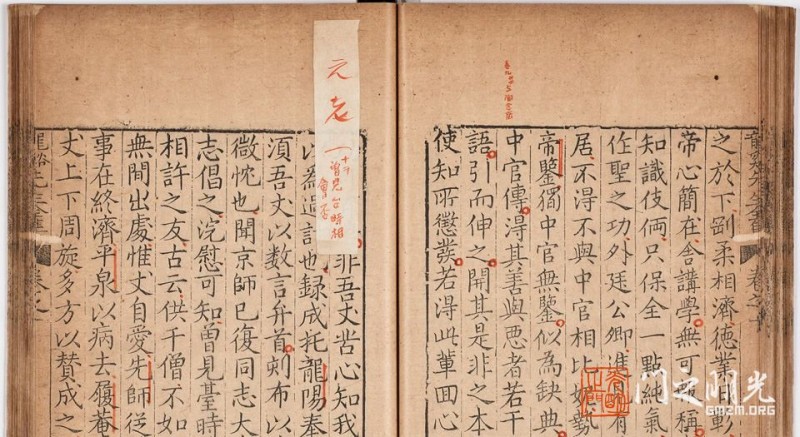 之於下剛柔相濟德業日彰
帝心簡在舍講學無可稱
知識伎倆只保全一點純氣
作聖之功外廷公卿進見有
居不得不與中官相比媚勢
帝鑒獨中官無鑒似為缺典
中官傳得其善與惡者若干
語引而伸之開其是非之本
使知所懲發若得此輩回心
元老
曾見台時相
會否
非吾丈苦心知我
以為過計也錄成托龍陽奉
須吾丈以數言弁首刻布以
微忱也聞京師已復同志大
志倡之浣慰可知曾見臺時
相許之友古云供千僧不如
無間出處惟丈自愛先師從
事在終濟平泉以病去履菴
丈上下周旋多方以贊成之
門之明光
GMZM.ORG